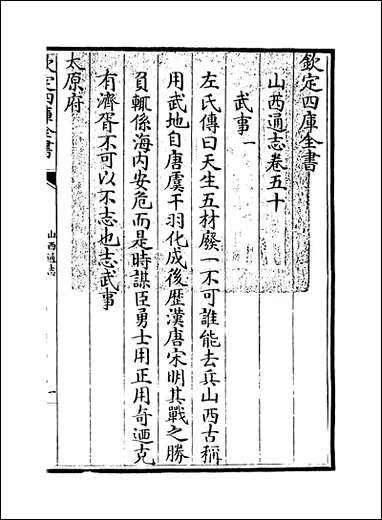 欽定四庫全書
山西通志卷五十
武事一
左氏傳曰天生五材廢一不可誰能去兵山西古稱
用武地自唐虞干羽化成後歴漢唐宋明其戰之勝
負輒係海内安危而是時謀臣勇士用正用奇迺克
有濟胥不可以不志也志武事
太原府
欽定四庫全書
山西通志
一